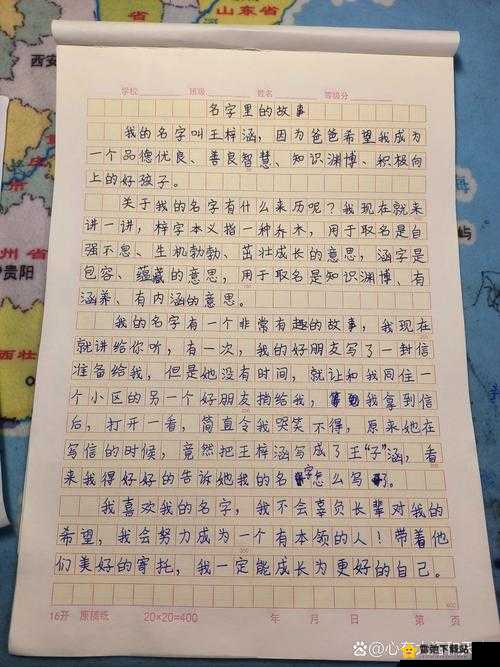 山东省
西安
州省
贵阳
西壮
屿
学校 班级 姓名 等级分
名字里的故事
我的名字叫王梓涵，因为爸爸希望我成为
一个品德优良、善良智慧、知识渊博、积极向
上的好孩子。
关于我的名字有什么来历呢？我现在就来
讲一讲，梓字本义指一种乔木，用于取名是自
强不息、生机勃勃、茁壮成长的意思，涵字是
包容、蕴藏的意思，用于取名是知识渊博、有
涵养、有内涵的意思。
我的名字有一个非常有趣的故事，我现在
就讲给你听，有一次，我的好朋友写了一封信
准备给我，但是她没有时间，就让和我同住一
个小区的另一个好朋友捎给我，我拿到信
后，打开一看，简直令我哭笑不得，原来她在
写信的时候，竟然把王梓涵写成了王“子”涵，看
来我得好好的告诉她我的名字怎么写了。
我喜欢我的名字，我不会辜负长辈对我的
希望，我会努力成为一个有本领的人！带着他
们美好的寄托，我一定能成长为更好的自己。
16开 原稿纸 20×20=400 年 月 日 第 页